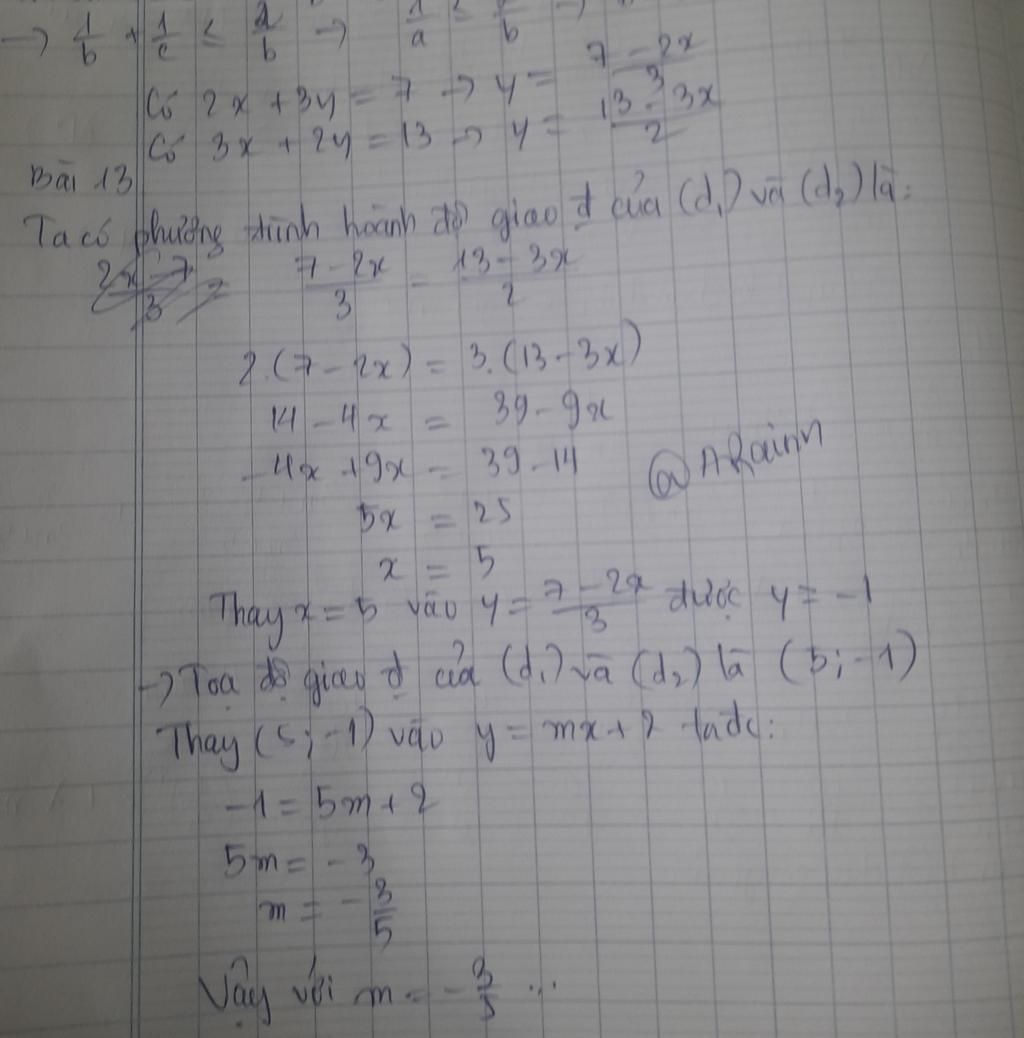 → 1/b + 1/c ≤ 2/b → 1/a ≤ /b →
Có 2x + 3y = 7 → y = (7 - 2x)/3
Có 3x + 2y = 13 → y = (13 - 3x)/2
Bài 13
Ta có phương trình hoành độ giao đ của (d₁) và (d₂) là:
(2x - 7)/3 = (7 - 2x)/3 = (13 - 3x)/2
2.(7 - 2x) = 3.(13 - 3x)
14 - 4x = 39 - 9x
-4x + 9x = 39 - 14
@ARainn
5x = 25
x = 5
Thay x = 5 vào y = (7 - 2x)/3 được y = -1
→ Toạ độ giao đ của (d₁) và (d₂) là (5; -1)
Thay (5; -1) vào y = mx + 2 ta đc:
-1 = 5m + 2
5m = -3
m = -3/5
Vậy với m = -3/5 ...